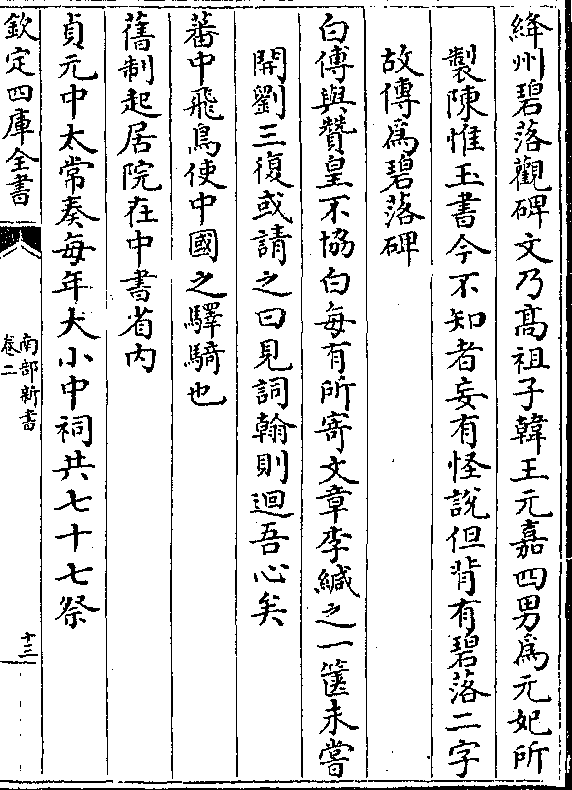 絳州碧落觀碑文乃高祖子韓王元嘉四男爲元妃所
製陳惟玉書今不知者妄有怪說但背有碧落二字
故傳爲碧落碑
白傅與贊皇不協白每有所寄文章李緘之一篋未嘗
開劉三復或請之曰見詞翰則迴吾心矣
蕃中飛鳥使中國之驛騎也
舊制起居院在中書省内
貞元中太常奏每年大小中祠共七十七祭
欽定四庫全書
南部新書
卷二
十三